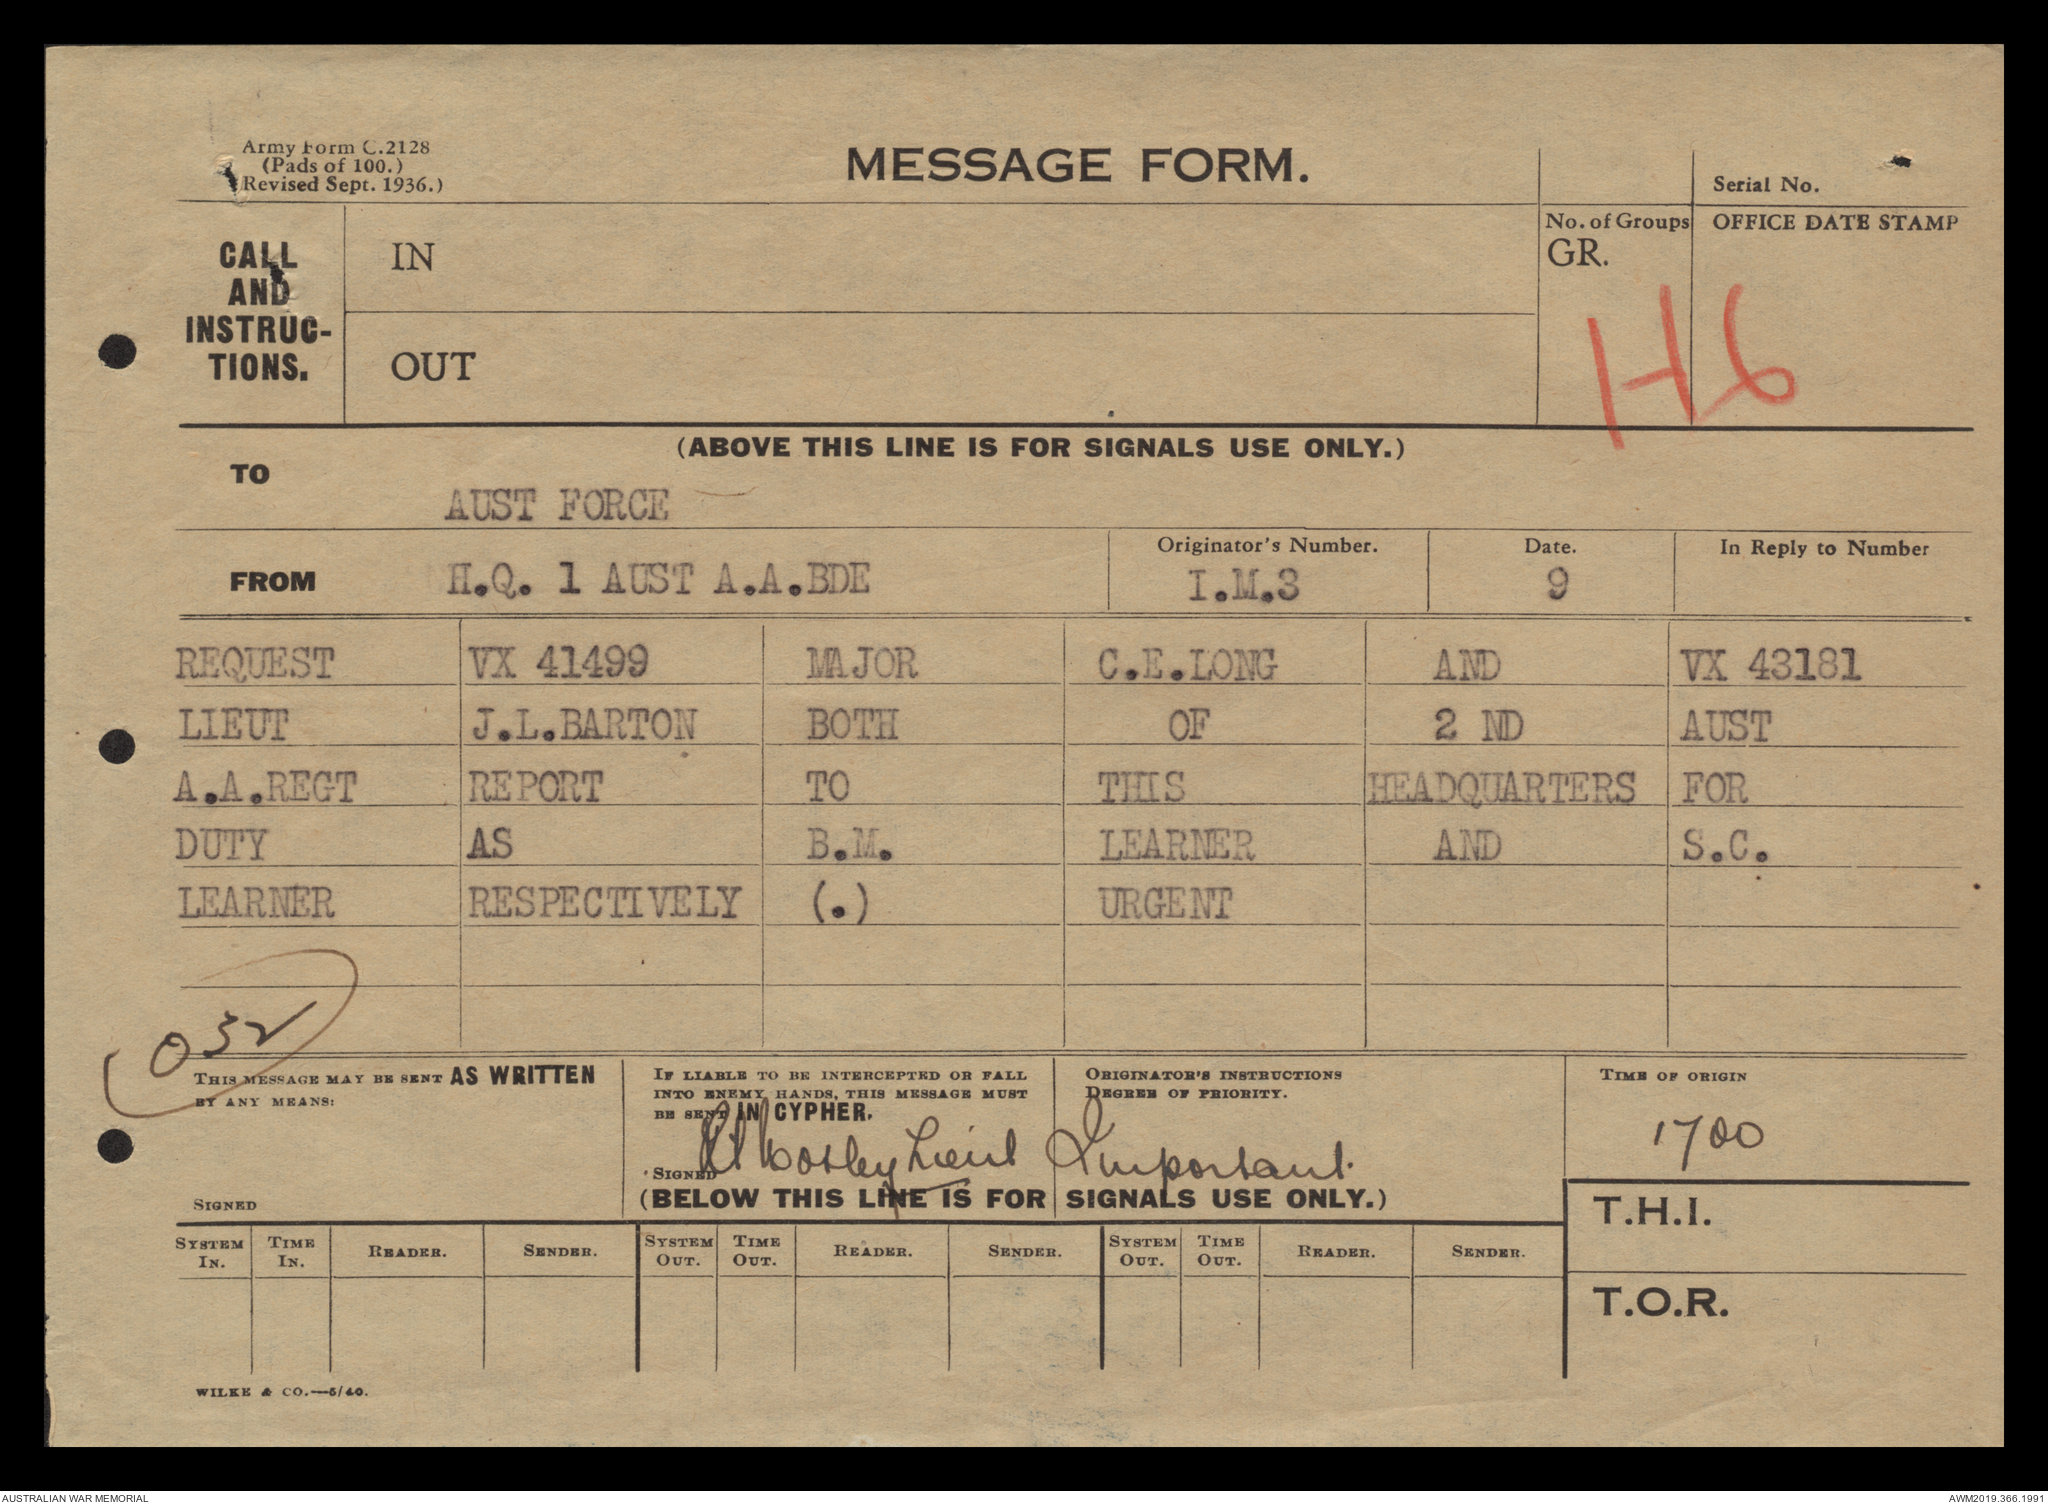 Army Form C.2128
(Pads of 100.)
(Revised Sept. 1936.)
MESSAGE FORM.
Serial No.
CALL
AND
INSTRUC-
TIONS.
IN
OUT
No. of Groups
GR.
OFFICE DATE STAMP
H6
(ABOVE THIS LINE IS FOR SIGNALS USE ONLY.)
TO
AUST FORCE
FROM
H.Q. 1 AUST A.A.BDE
Originator's Number.
I.M.3
Date.
9
In Reply to Number
REQUEST VX 41499 MAJOR C.E.LONG AND VX 43181
LIEUT J.L.BARTON BOTH OF 2 ND AUST
A.A.REGT REPORT TO THIS HEADQUARTERS FOR
DUTY AS B.M. LEARNER AND S.C.
LEARNER RESPECTIVELY (.) URGENT
032
THIS MESSAGE MAY BE SENT AS WRITTEN
BY ANY MEANS:
SIGNED
IF LIABLE TO BE INTERCEPTED OR FALL
INTO ENEMY HANDS, THIS MESSAGE MUST
BE SENT IN CYPHER.
SIGNED Lieut
ORIGINATOR'S INSTRUCTIONS
DEGREE OF PRIORITY.
Important.
TIME OF ORIGIN
1700
(BELOW THIS LINE IS FOR SIGNALS USE ONLY.)
T.H.I.
T.O.R.
SYSTEM IN. TIME IN. READER. SENDER. SYSTEM OUT. TIME OUT. READER. SENDER. SYSTEM OUT. TIME OUT. READER. SENDER.
WILKE & CO.—5/40.
AUSTRALIAN WAR MEMORIAL
AWM2019.366.1991